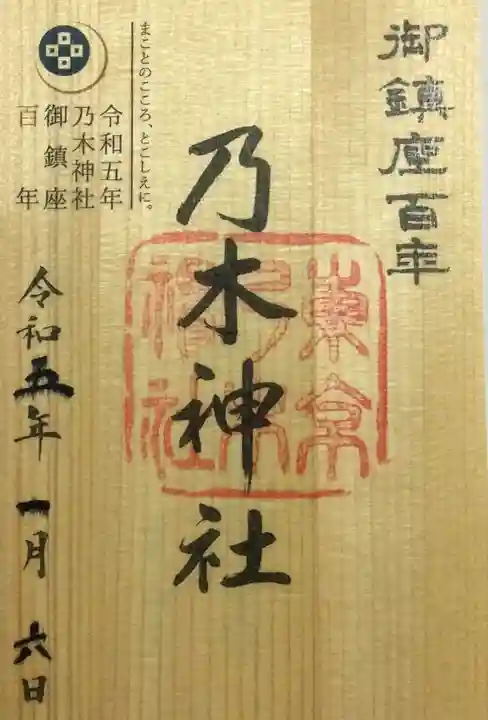 御鎮座百年
乃木神社
東京
乃木
神社
まことのこころ、とこしえに。
令和五年
乃木神社
御鎮座
百年
令和五年一月六日